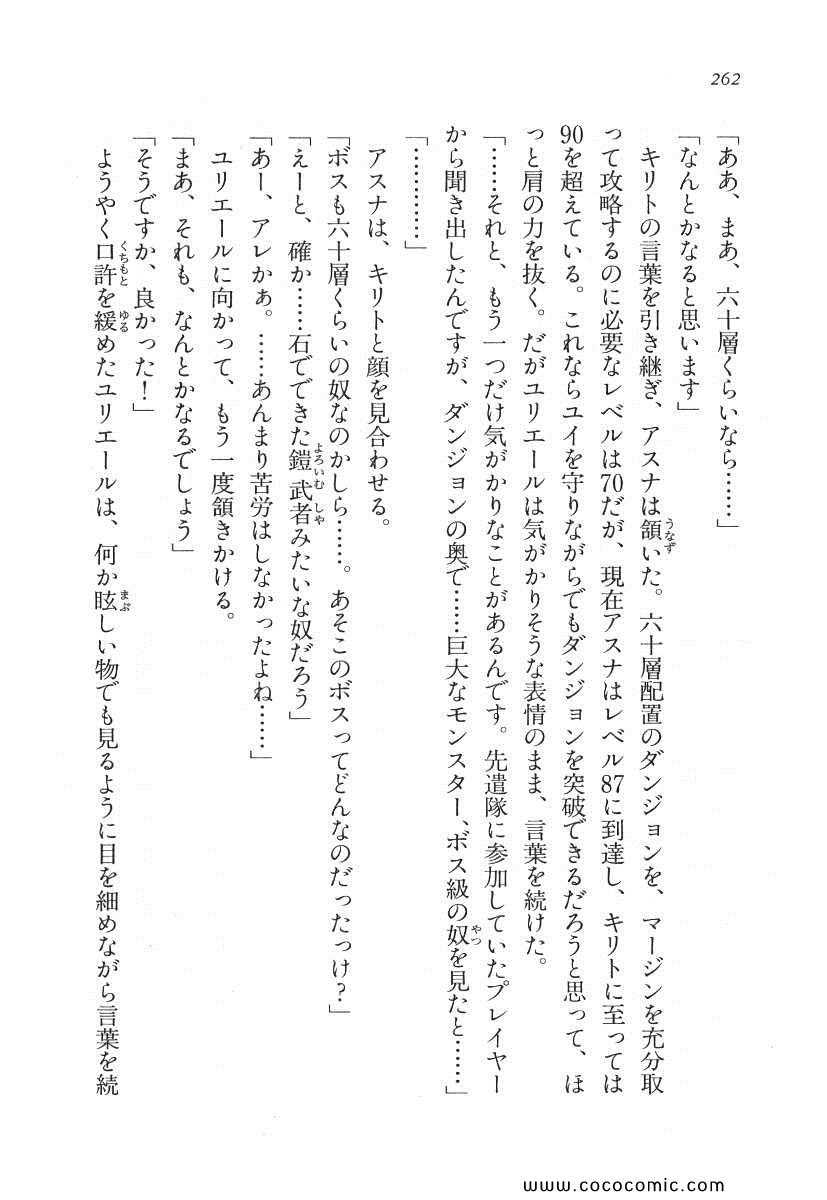 262
「ああ、まあ、六十層くらいなら……」
「なんとかなると思います」
キリトの言葉を引き継ぎ、アスナは頷いた。六十層配置のダンジョンを、マージンを充分取
って攻略するのに必要なレベルは70だが、現在アスナはレベル87に到達し、キリトに至っては
90を超えている。これならユイを守りながらでもダンジョンを突破できるだろうと思って、ほ
っと肩の力を抜く。だがユリエールは気がかりそうな表情のまま、言葉を続けた。
「……それと、もう一つだけ気がかりなことがあるんです。先遣隊に参加していたプレイヤー
から聞き出したんですが、ダンジョンの奥で……巨大なモンスター、ボス級の奴を見たと……」
「…………」
アスナは、キリトと顔を見合わせる。
「ボスも六十層くらいの奴なのかしら……。あそこのボスってどんなのだったっけ？」
「えーと、確か……石でできた鎧武者みたいな奴だろう」
「あー、アレかぁ。……あんまり苦労はしなかったよね……」
ユリエールに向かって、もう一度頷きかける。
「まあ、それも、なんとかなるでしょう」
「そうですか、良かった！」
ようやく口許を緩めたユリエールは、何か眩しい物でも見るように目を細めながら言葉を続
www.cococomic.com